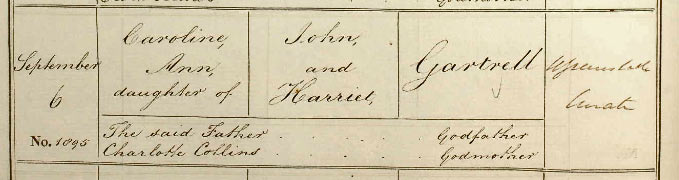 September
6
No. 1895
Caroline,
Ann,
daughter of
John,
and
Harriet,
Gartrell
Curate
The said Father . . . . Godfather
Charlotte Collins . . . . Godmother